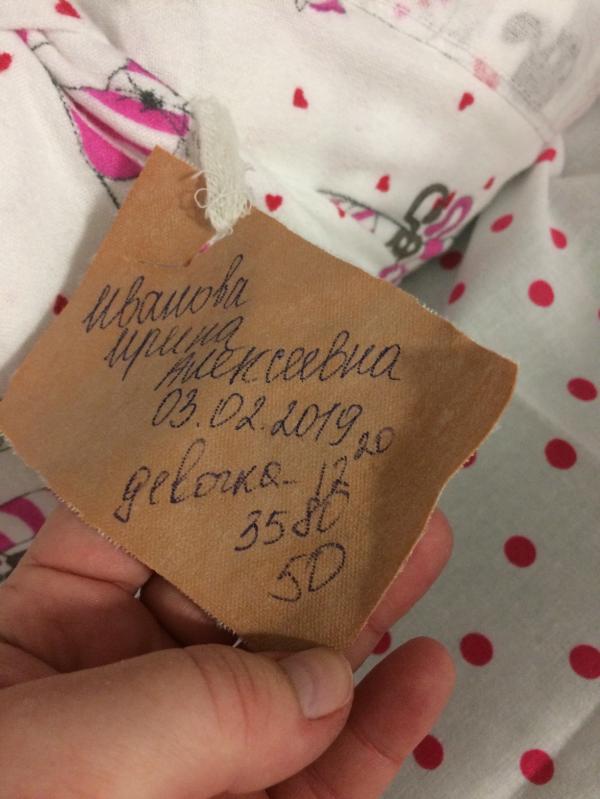 Иванова
Ирина
Алексеевна
03.02.2019
девочка - 12 20
3580
50